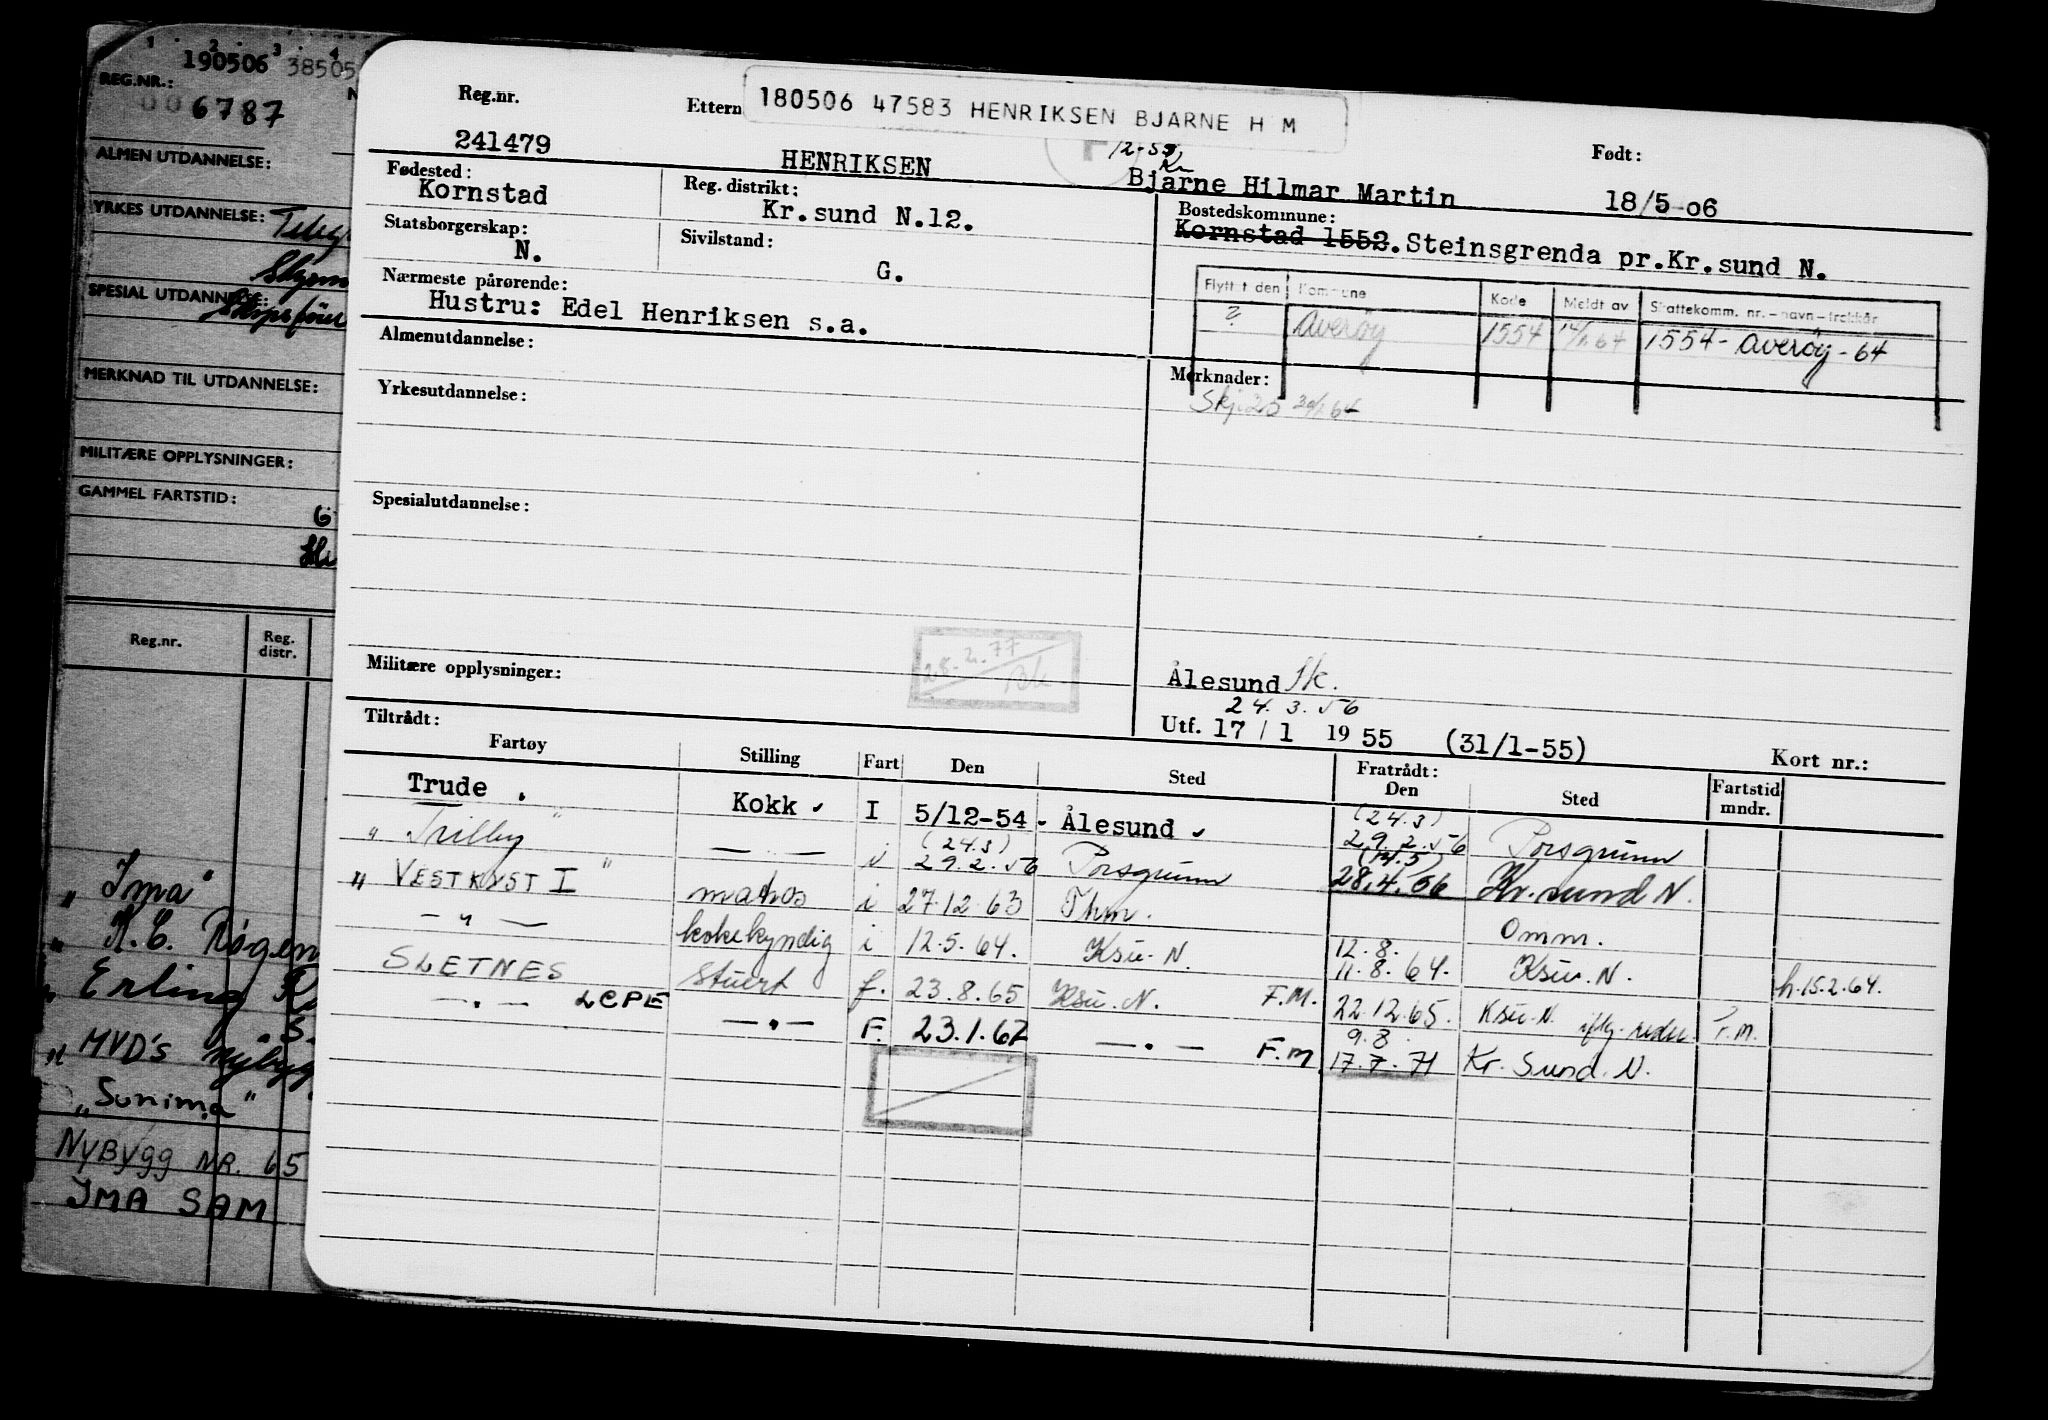 1 2 3 4
190506 38505
REG.NR.:
006787
ALMEN UTDANNELSE:
YRKES UTDANNELSE:
SPESIAL UTDANNELSE:
MERKNAD TIL UTDANNELSE:
MILITÆRE OPPLYSNINGER:
GAMMEL FARTSTID:
Reg.nr. Reg. distr.
„ Ima"
„ K.E. Rogen
„ Erling
„ MVD's Nybygg
„Sunima"
NYBYGG NR. 65
IMA SAM
180506 47583 HENRIKSEN BJARNE H M
Reg.nr. Ettern Født:
12-55
Kr
241479 HENRIKSEN Bjarne Hilmar Martin 18/5-06
Fødested: Reg. distrikt: Bostedskommune:
Kornstad Kr.sund N.12. Kornstad 1552. Steinsgrenda pr.Kr.sund N.
Statsborgerskap: Sivilstand:
N. G.
Flytt t den Kommune Kode Meldt av Skattekomm. nr.-navn-trekkår
? Averøy 1554 64 1554 - Averøy - 64
Nærmeste pårørende:
Hustru: Edel Henriksen s.a.
Almenutdannelse:
Merknader:
Skj.25 64
Yrkesutdannelse:
Spesialutdannelse:
28.2.77
Militære opplysninger:
Ålesund Sk.
24.3.56
Utf. 17/1 1955 (31/1-55) Kort nr.:
Tiltrådt: Fratrådt:
Fartøy Stilling Fart Den Sted Den Sted Fartstid mndr.
Trude . Kokk I 5/12-54 Ålesund (24.3) 29.2.56 Porsgrunn
" Trilby " — — i (24.3) 29.2.56 Porsgrunn (14.5) 28.4.56 Kr.sund N.
" VESTKYST I " matros i 27.12.63 Thm. Omm.
— " — kokekyndig i 12.5.64. Ksu. N. 12.8. 11.8.64. Ksu. N. h.15.2.64.
SLETNES Stuert f. 23.8.65 Ksu. N. F.M. 22.12.65. Ksu. N. iflg. reder F.M.
— . — LCPE — . — F. 23.1.67 — . — F.M. 9.8. 17.7.71 Kr. Sund. N.